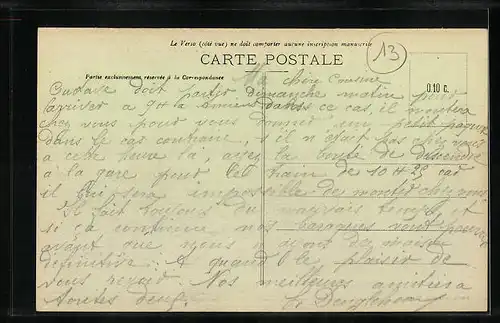 Le Verso (côté vue) ne doit comporter aucune inscription manuscrite
CARTE POSTALE
13
Partie exclusivement réservée à la Correspondance
0.10 c.
Ma chère Cousine
Gustave doit partir dimanche matin pour
arriver à 9H la dans ce cas, il montera
chez vous pour vous donner un petit paquet
dans le cas contraire, s'il n'était pas chez vous
a cette heure la, ayez la bonté de descendre
à la gare pour le train de 10H29 car
il lui sera impossible de monter chez vous
Il fait toujours du mauvais temps et
si ça continue nos baraques vont
avant que nous ayons de maison
définitive. A quand le plaisir de
vous revoir. Nos meilleures amitiés
à toutes deux.